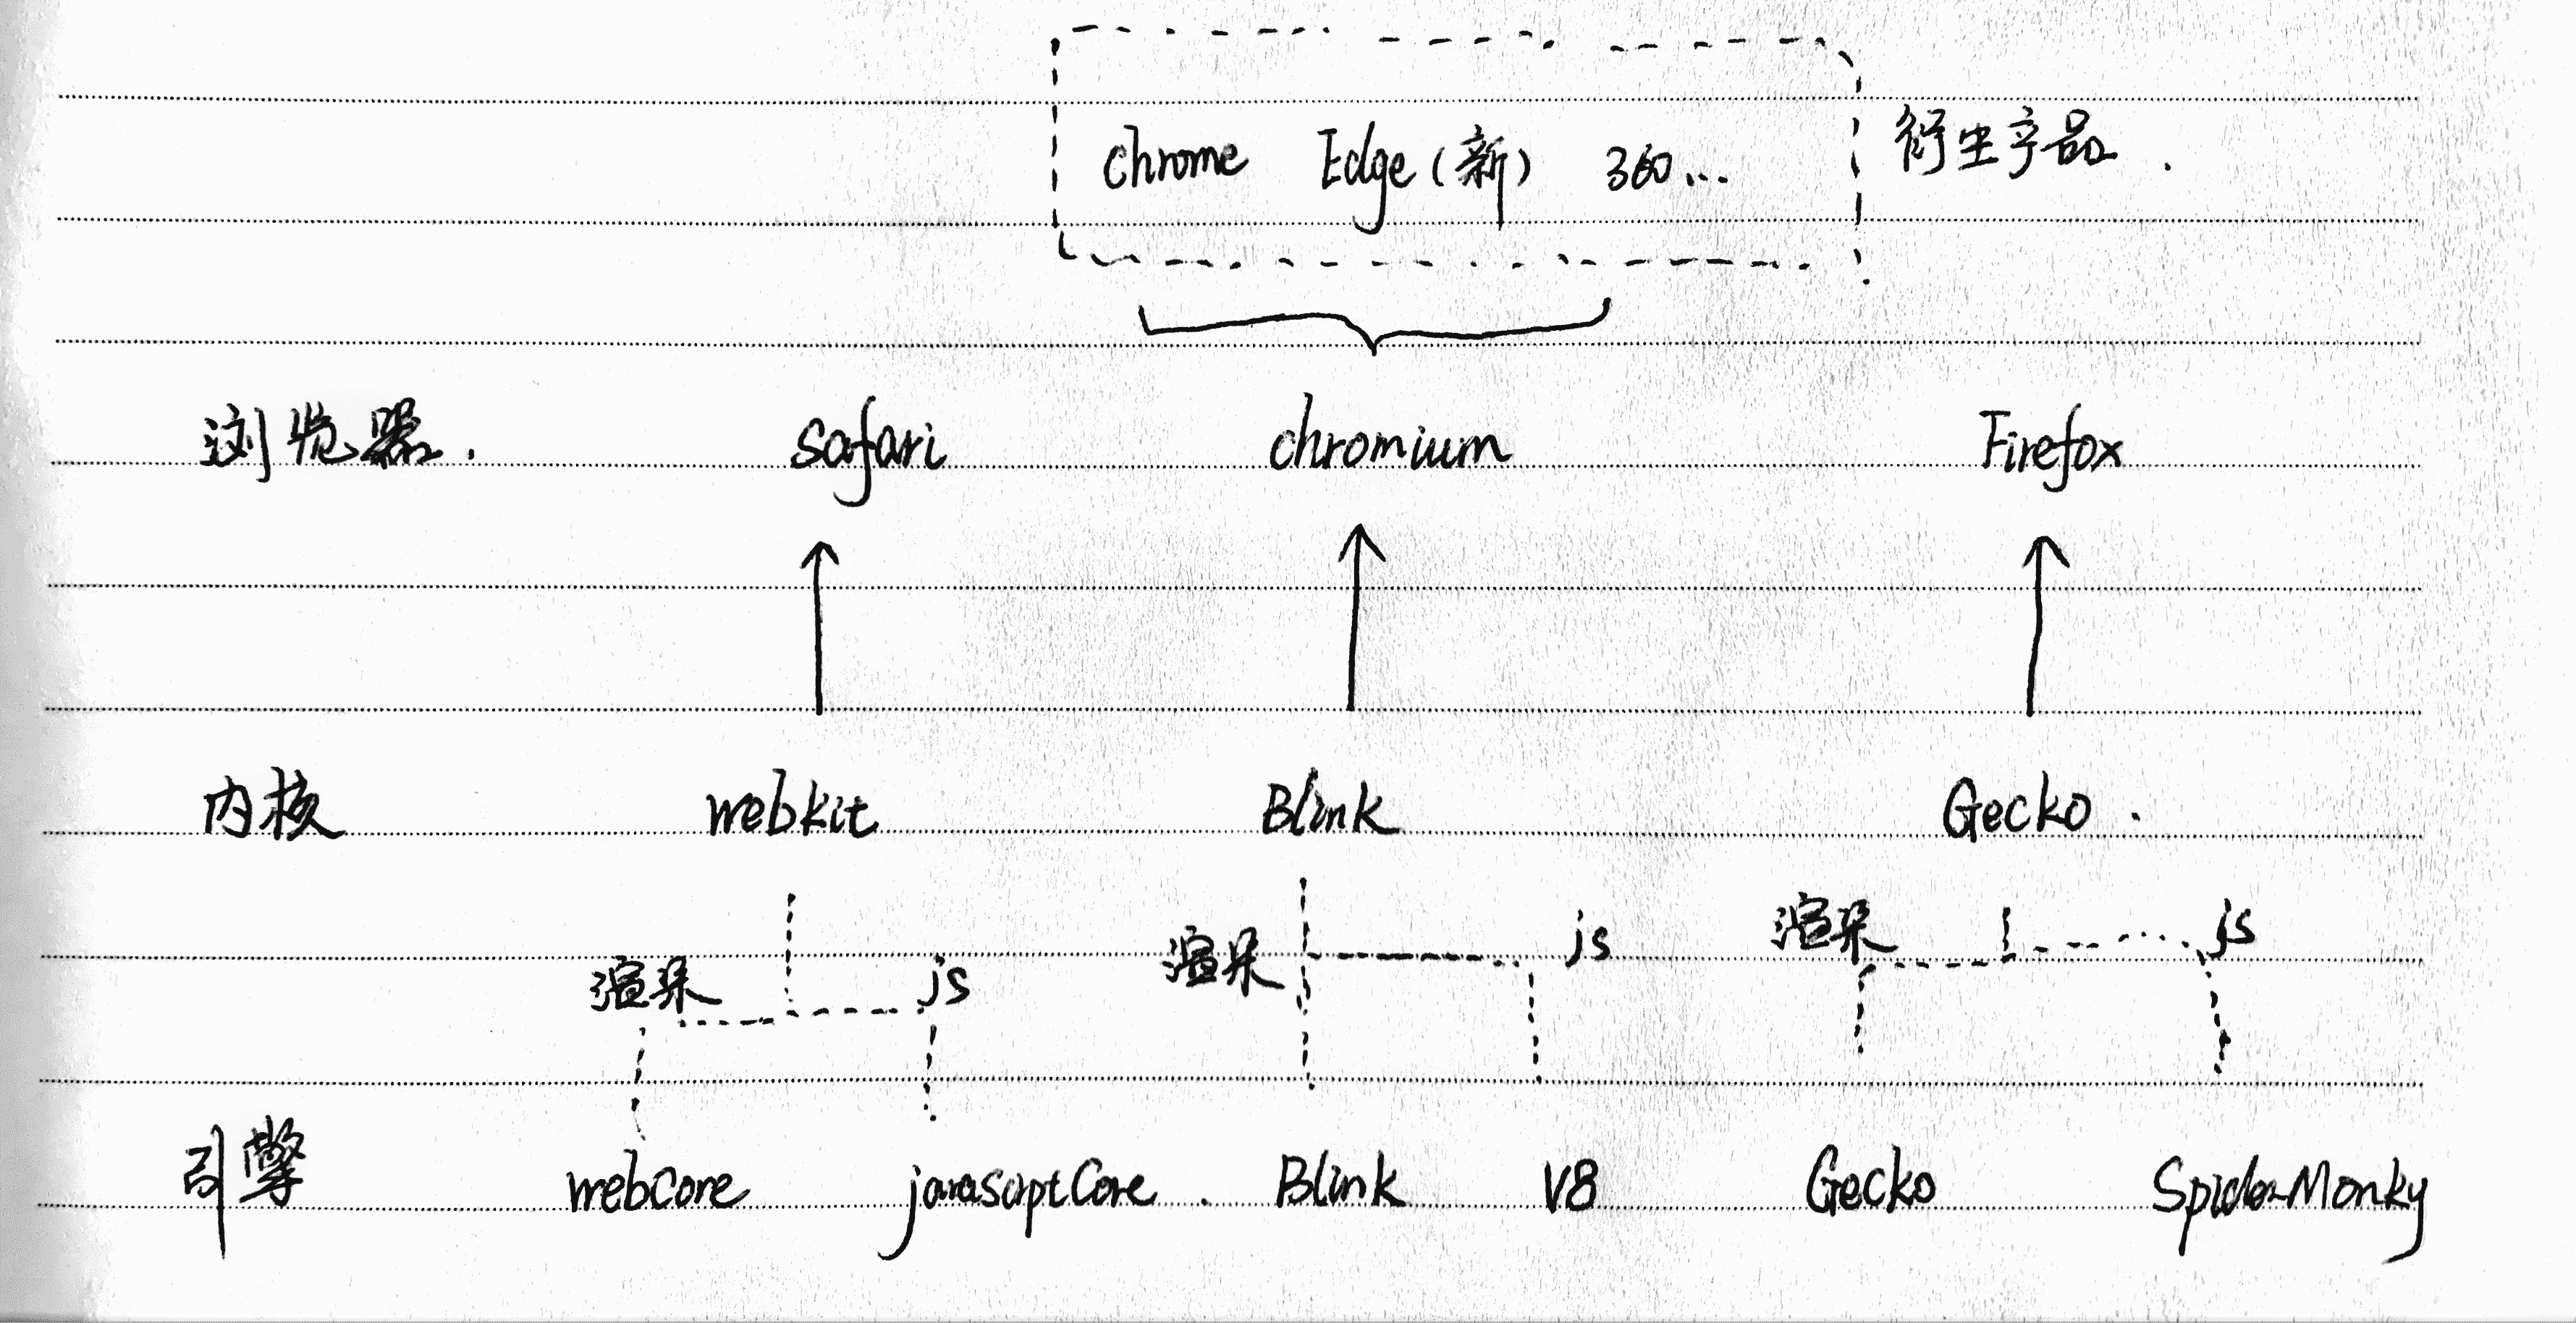 chrome Edge(新) 360... 衍生产品.
浏览器. safari chromium Firefox
内核 webkit Blink Gecko.
渲染 js 渲染 js 渲染 js
引擎 webCore javascriptCore. Blink V8 Gecko SpiderMonky